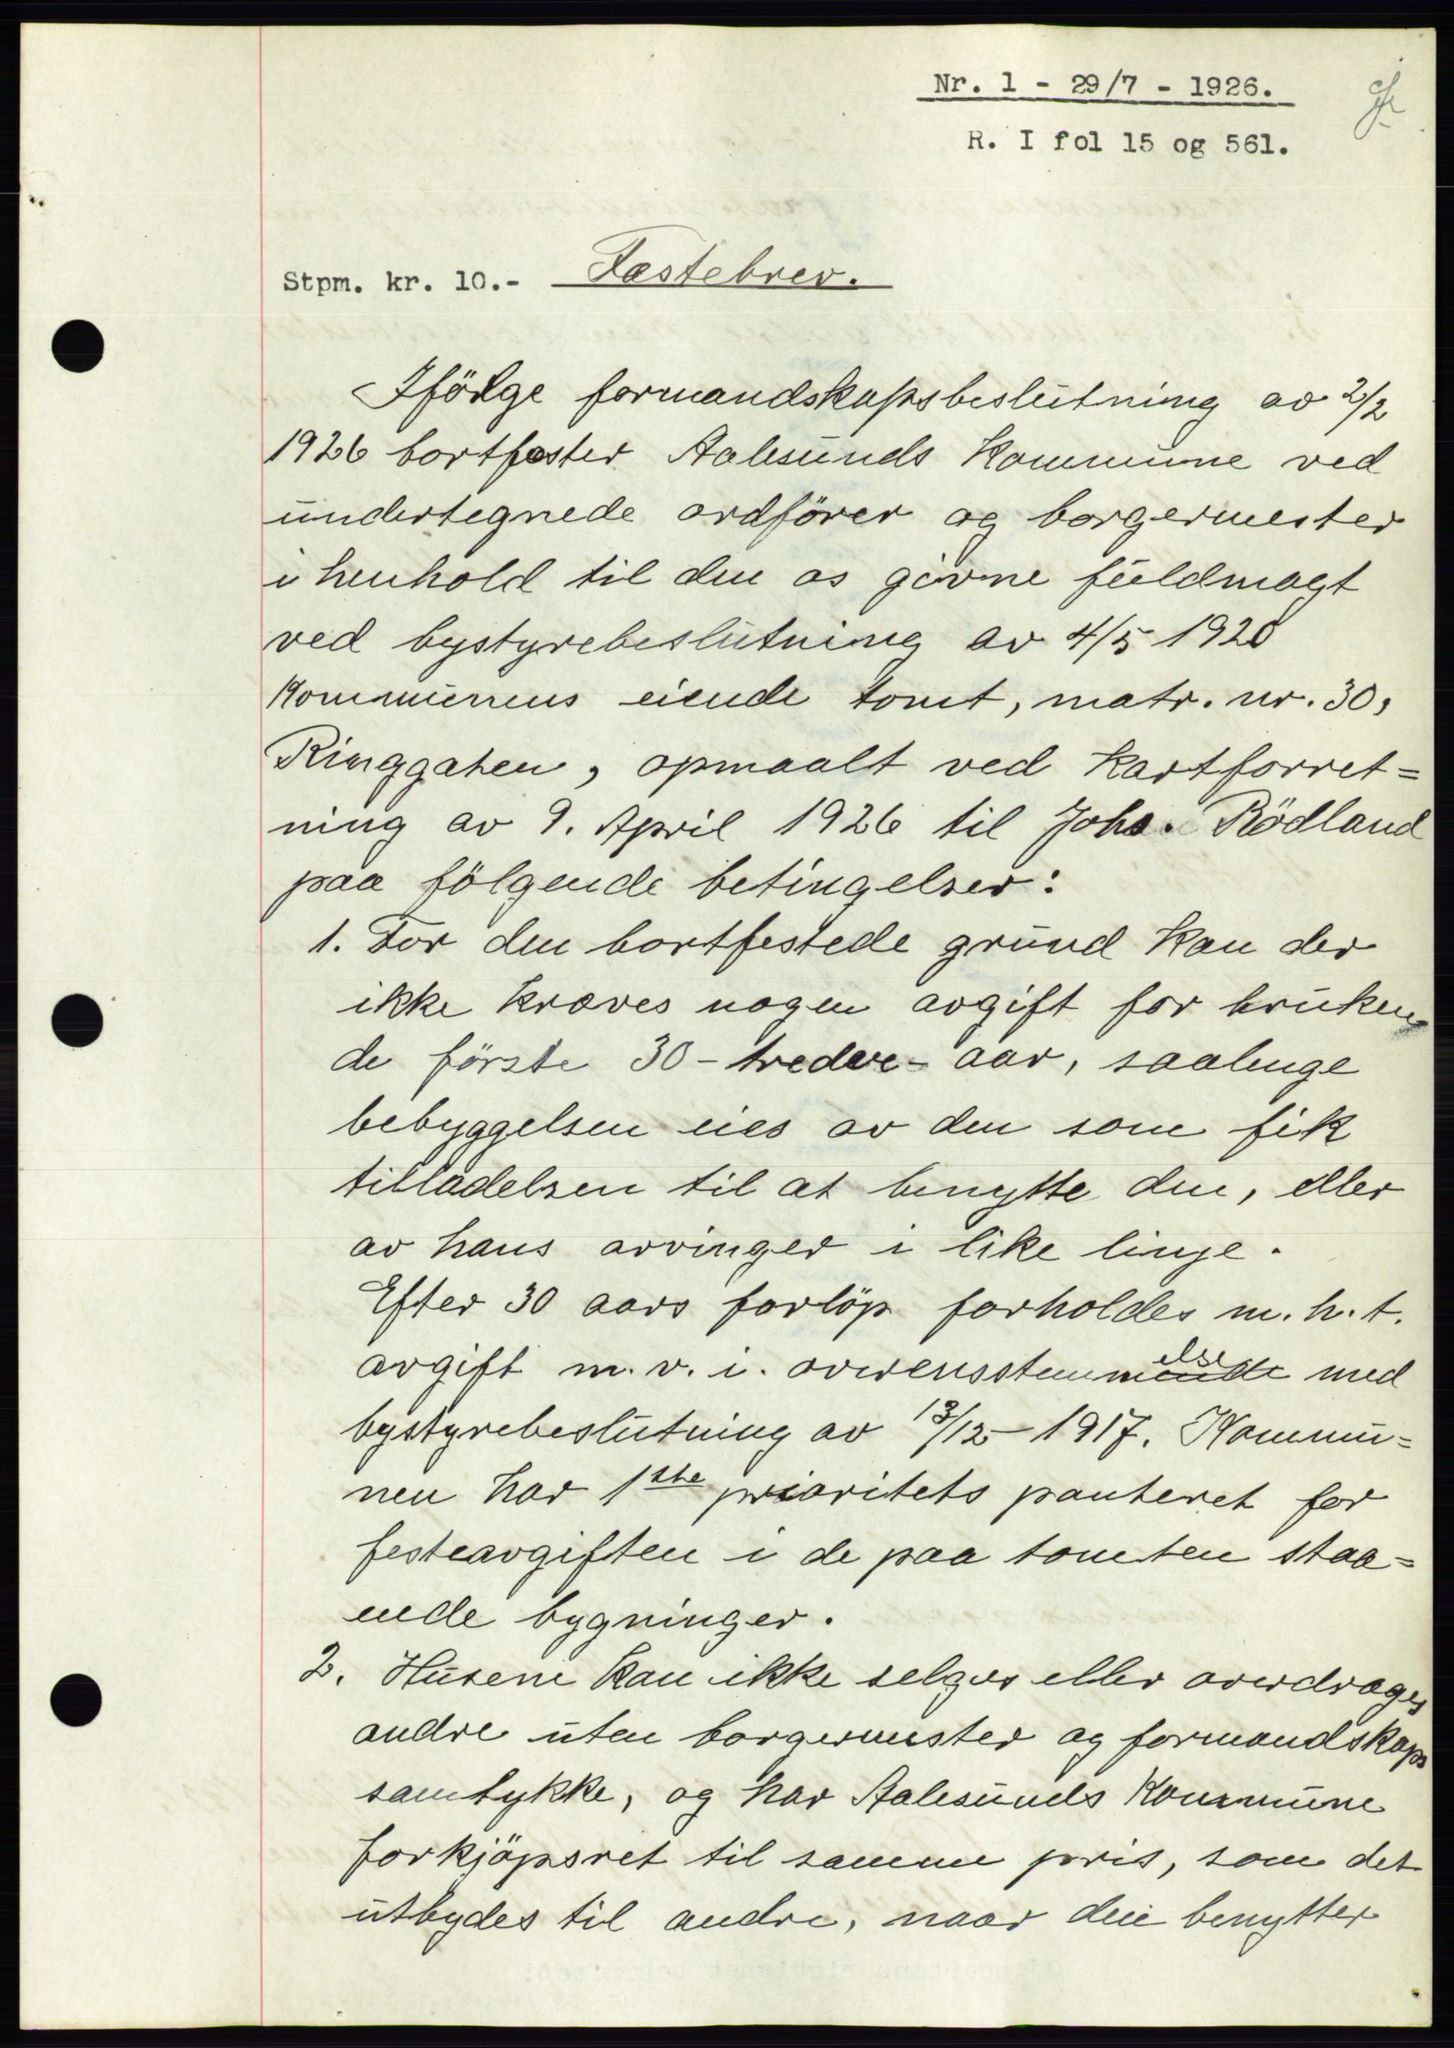 Nr. 1 - 29/7 - 1926.
R. I fol 15 og 561.
Stpm. kr. 10.- Fæstebrev.
Ifölge formandskapsbeslutning av 2/2
1926 bortfester Aalesunds Kommune ved
undertegnede ordförer og borgermester
i henhold til den os givne fuldmagt
ved bystyrebeslutning av 4/5 1920
Kommunens eiende tomt, matr. nr. 30,
Ringgaten, opmaalt ved Kartforret=
ning av 9. April 1926 til Johs. Rödland
paa fölgende betingelser:
1. For den bortfestede grund Kan der
ikke kræves nogen avgift for bruken
de förste 30 - tredve - aar, saalenge
bebyggelsen eies av den som fik
tilladelsen til at benytte den, eller
av hans arvinger i like linje.
Efter 30 aars forlöp forholdes m. h. t.
avgift m. v. i. overensstemmelse med
bystyrebeslutning av 13/12 - 1917. Kommu=
nen har 1ste prioritets panteret for
festeavgiften i de paa tomten staa=
ende bygninger.
2. Husene Kan ikke selges eller overdrages
andre uten borgermester og formandskaps
samtykke, og har Aalesunds Kommune
forkjöpsret til samme pris, som det
utbydes til andre, naar den benytter